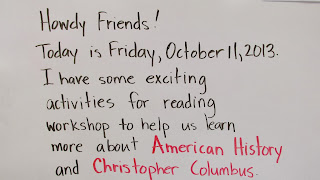 Howdy Friends!
Today is Friday, October 11, 2013.
I have some exciting
activities for reading
workshop to help us learn
more about American History
and Christopher Columbus.